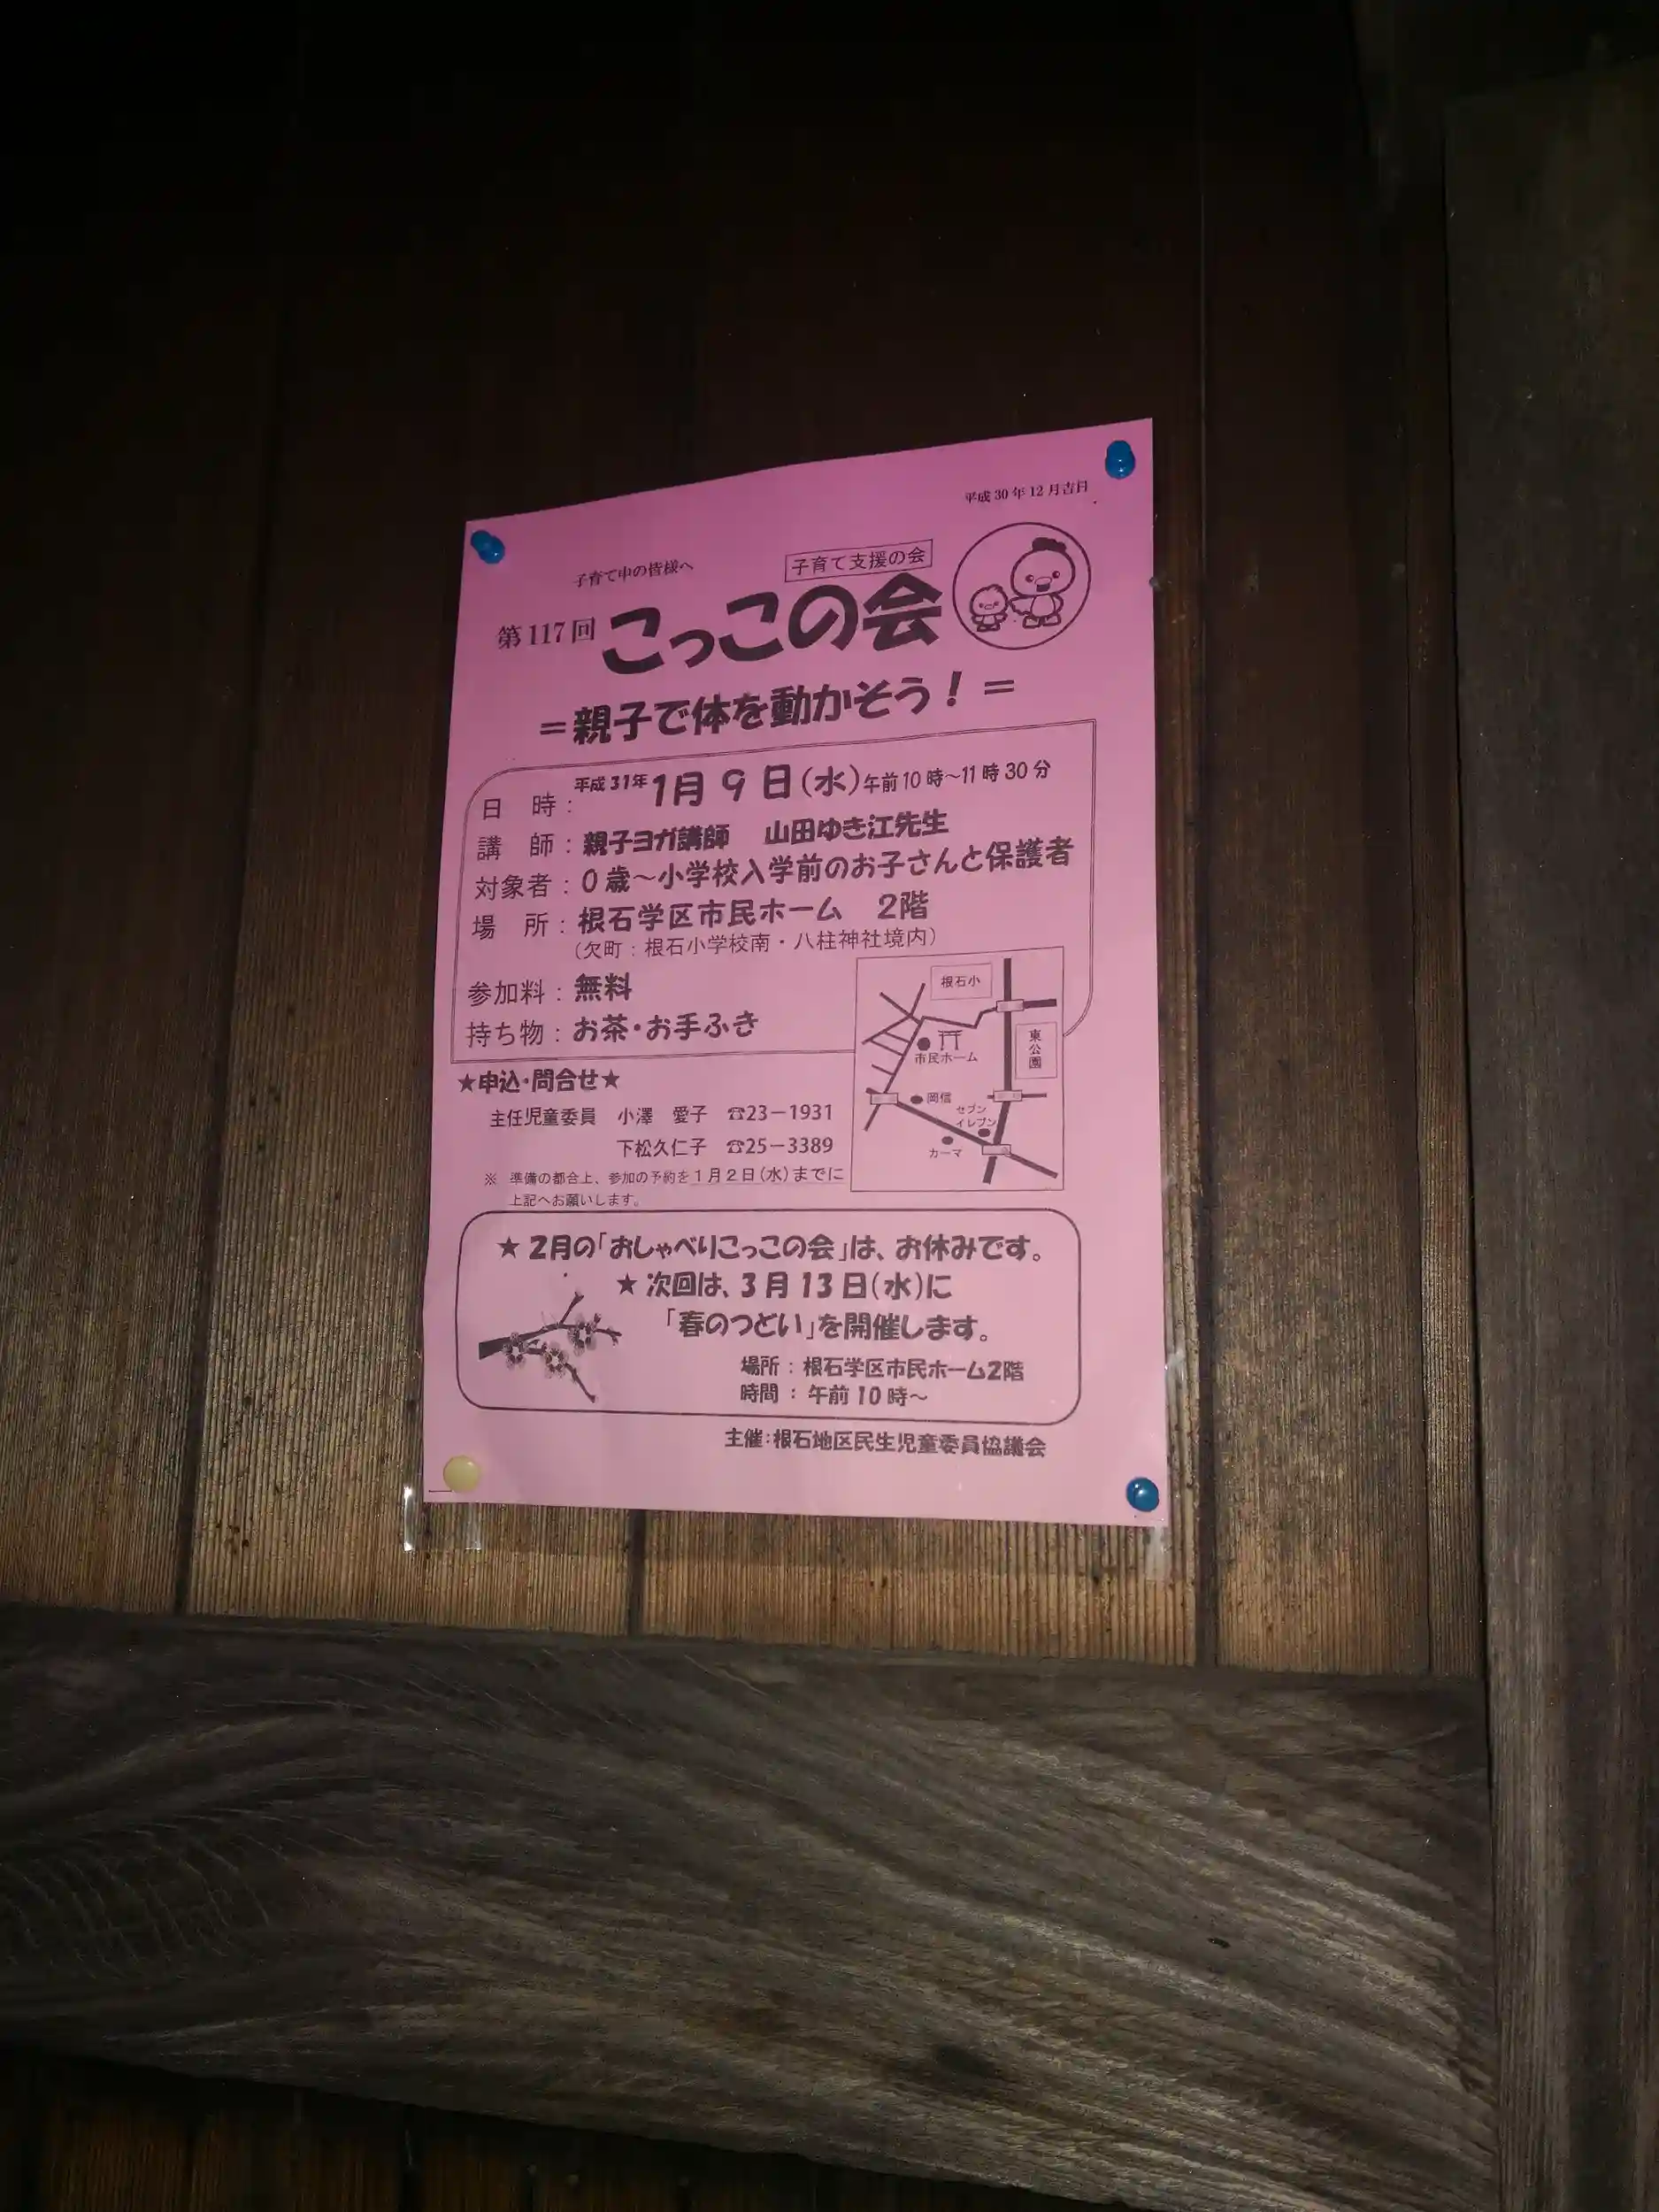 平成30年12月吉日
子育て中の皆様へ
子育て支援の会
第117回 こっこの会
=親子で体を動かそう!=
日 時: 平成31年1月9日(水)午前10時~11時30分
講 師:親子ヨガ講師 山田ゆき江先生
対象者:0歳~小学校入学前のお子さんと保護者
場 所:根石学区市民ホーム 2階
(欠町:根石小学校南・八柱神社境内)
参加料:無料
持ち物:お茶・お手ふき
根石小
東公園
市民ホーム
岡信
セブン
イレブン
カーマ
★申込・問合せ★
主任児童委員 小澤 愛子 ☎23-1931
下松久仁子 ☎25-3389
※ 準備の都合上、参加の予約を1月2日(水)までに
上記へお願いします。
★2月の「おしゃべりこっこの会」は、お休みです。
★次回は、3月13日(水)に
「春のつどい」を開催します。
場所:根石学区市民ホーム2階
時間:午前10時~
主催:根石地区民生児童委員協議会